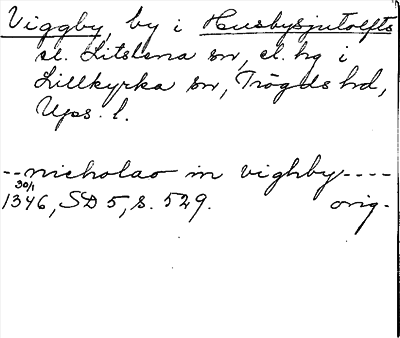 Viggby, by i Husbysjutolfts
el. Litslena sn, el. hg i
Lillkyrka sn, Trögds hd,
Ups. l.
--nicholao in vighby----
30/1
1346, SD 5, s. 529. orig.